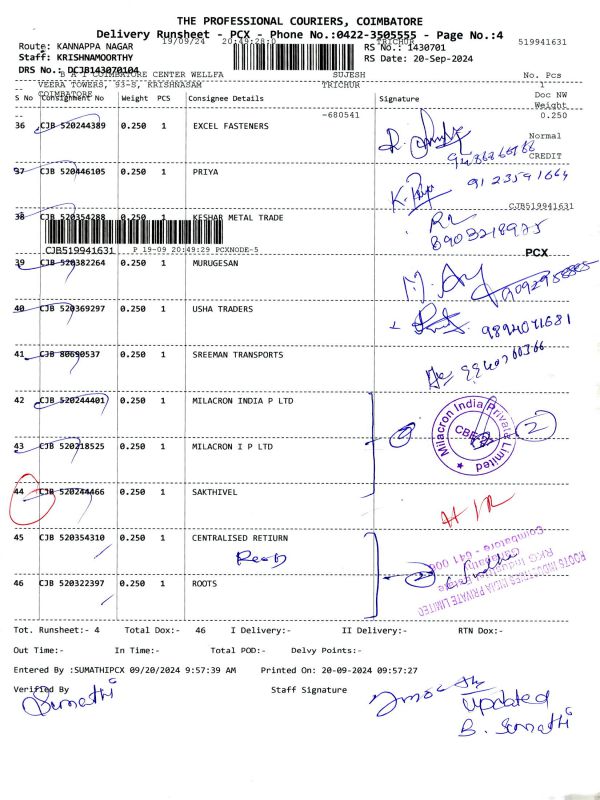 THE PROFESSIONAL COURIERS, COIMBATORE
Delivery Runsheet - PCX - Phone No.:0422-3505555 - Page No.:4
19/09/24 20:49:28:0 TRICHUR 519941631
Route: KANNAPPA NAGAR RS No.: 1430701
Staff: KRISHNAMOORTHY RS Date: 20-Sep-2024
DRS No.: DCJB143070104
B A T COIMBATORE CENTER WELLFA SUJESH No. Pcs
VEERA TOWERS, 93-S, KRISHNASAM TRICHUR 1
COIMBATORE Doc NW
S No Consignment No Weight PCS Consignee Details Signature Weight
-680541 0.250
36 CJB 520244389 0.250 1 EXCEL FASTENERS
Normal
CREDIT
37 CJB 520446105 0.250 1 PRIYA
K. Priya 9123591664
CJB519941631
38 CJB 520354288 0.250 1 KESHAR METAL TRADE
8903218975
CJB519941631 P 19-09 20:49:29 PCXNODE-5 PCX
39 CJB 520382264 0.250 1 MURUGESAN
40 CJB 520369297 0.250 1 USHA TRADERS
9894071681
41 CJB 80690537 0.250 1 SREEMAN TRANSPORTS
42 CJB 520244401 0.250 1 MILACRON INDIA P LTD
Milacron India Private Limited
2
43 CJB 520218525 0.250 1 MILACRON I P LTD
44 CJB 520244466 0.250 1 SAKTHIVEL
45 CJB 520354310 0.250 1 CENTRALISED RETIURN
ROOTS INDUSTRIES INDIA PRIVATE LIMITED
Coimbatore - 641 006
2
46 CJB 520322397 0.250 1 ROOTS
Tot. Runsheet:- 4 Total Dox:- 46 I Delivery:- II Delivery:- RTN Dox:-
Out Time:- In Time:- Total POD:- Delvy Points:-
Entered By :SUMATHIPCX 09/20/2024 9:57:39 AM Printed On: 20-09-2024 09:57:27
Verified By Staff Signature
Sumathi
updated
B. Sumathi